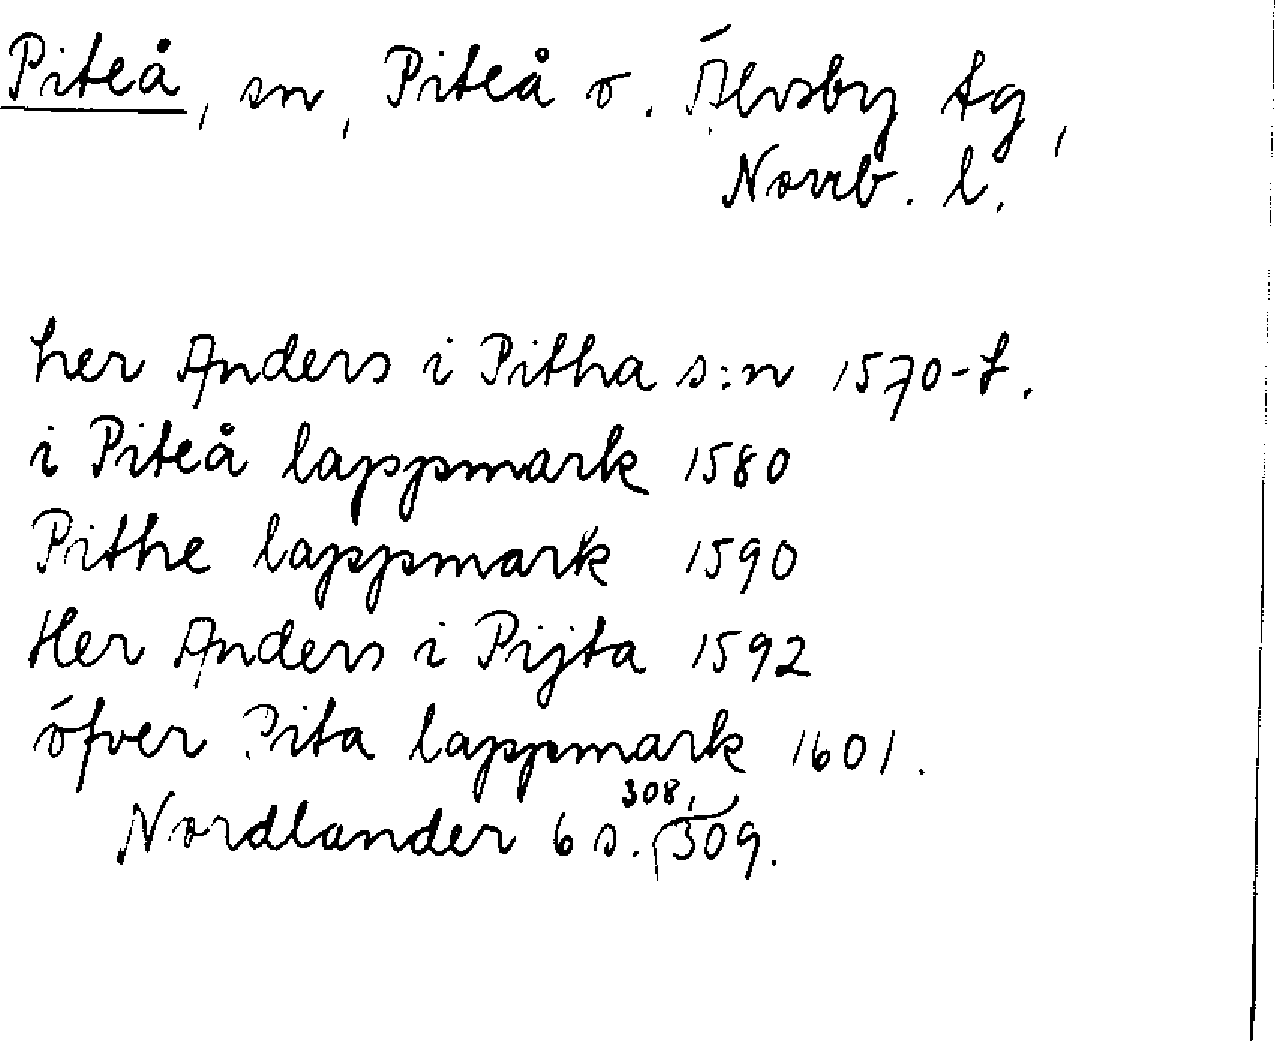 Piteå, sn, Piteå o. Älvsby tg,
Norrb. l.
her Anders i Pitha s:n 1570-t.
i Piteå lappmark 1580
Pithe lappmark 1590
Her Anders i Pijta 1592
öfver Pita lappmark 1601.
Nordlander 6 s. 308, 309.